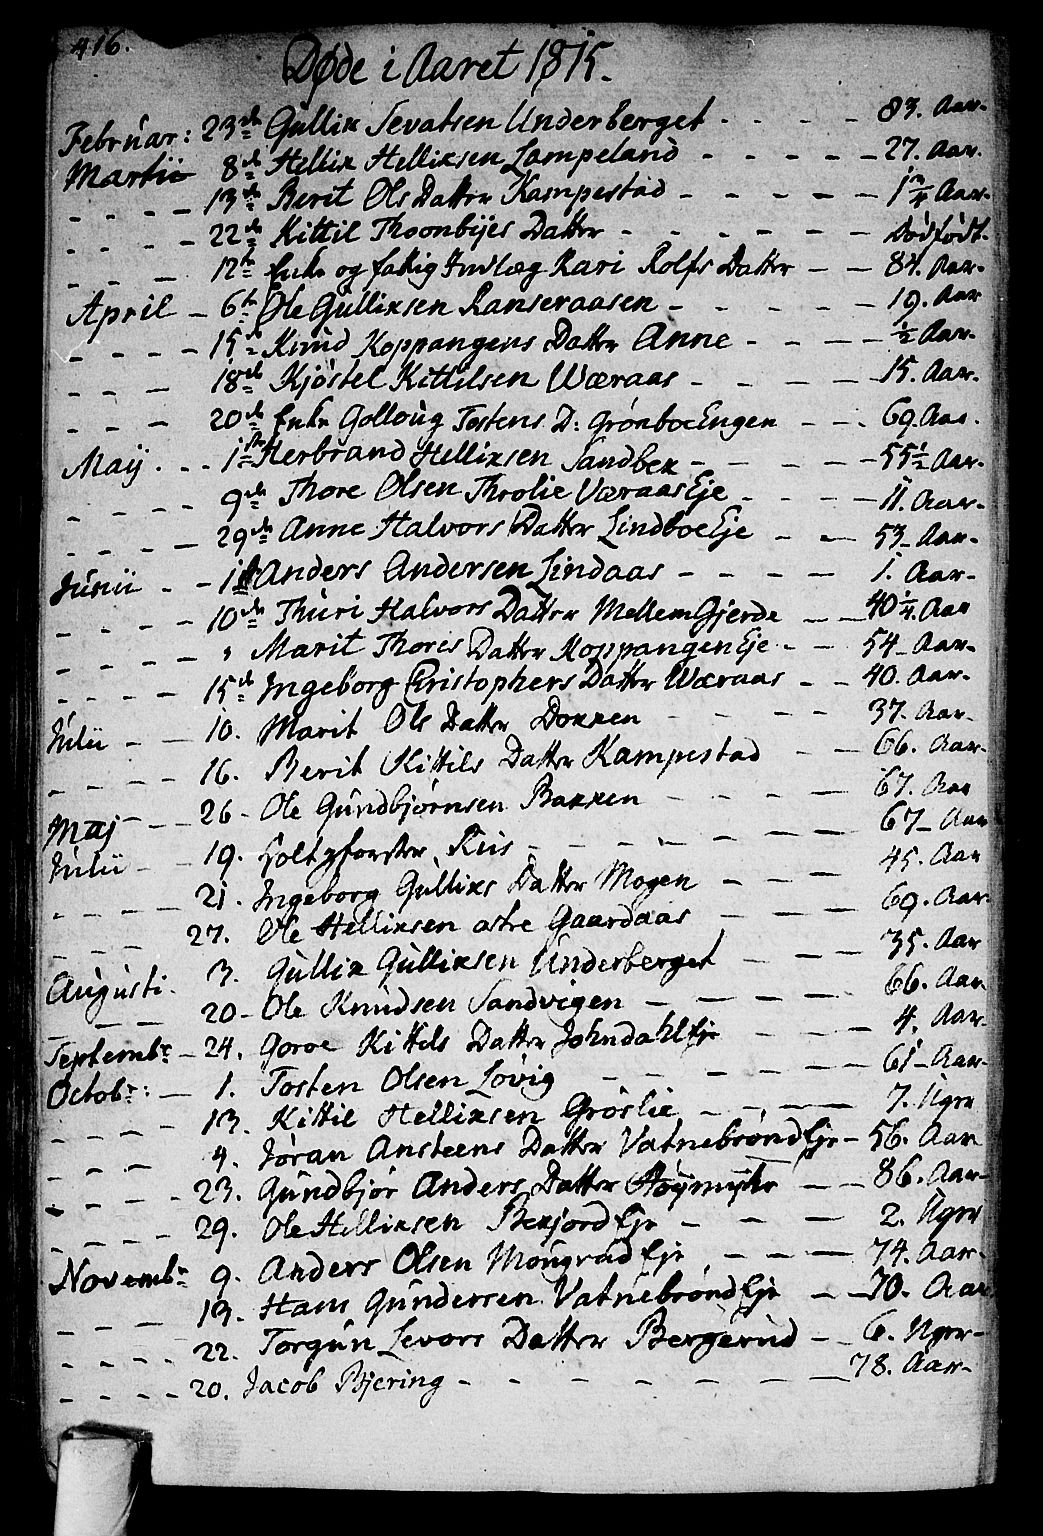 416.
Døde i Aaret 1815.
Februar: 23de Gullik Sevatsen Underberget - - - - 83. Aar-
Martii 8de Hellik Helliksen Lampeland - - - - - 27. Aar.
- - - - 13de Berit Ols Datter Kampestad - - - - - Aar-
- - - - 22de Kittil Thoonbijes Datter - - - - - - Dødfødt-
- - - 12te Enke og fattig Indlæg Kari Rolfs Datter - - 84. Aar-
April - 6te Ole Gulliksen Ranseraasen - - - - - 19. Aar
- - - - 15de Knud Koppangens Datter Anne - - - - ½ Aar-
- - - 18de Kjøstel Kittilsen Wæraas - - - - - 15. Aar.
- - - 20de Enke Golloug Tostens D: GrønboeEngen - - - 69. Aar.
Maij. - - 1ste Herbrand Helliksen Sandbek - - - - - 55½ Aar-
- - - - 9de Thore Olsen Throlie VæraasEje - - - - - 11. Aar-
- - - - 29de Anne Halvors Datter LindboeEje - - - 53- Aar-
Junii - - 1ste Anders Andersen Lindaas - - - - - 1. Aar-
- - - - 10de Thuri Halvors Datter MellemGjerde - - 40¼ Aar
- - - - " Marit Thores Datter KoppangenEje - - 54- Aar-
- - - - 15de Ingeborg Christophers Datter Wæraas - - 40. Aar-
Julii - - 10. Marit Ols Datter Dokken - - - - 37. Aar-
- - - - 16. Berit Kittils Datter Kampestad - - 66. Aar-
- - - - 26- Ole Gundbjørnsen Bakken - - - - 67. Aar
Maj - - 19. Holtzforster Riis - - - - - - 67- Aar
Julii - - 21. Ingeborg Gulliks Datter Mogen - - - 45. Aar
- - - - 27. Ole Helliksen østre Gaardaas - - - - 69. Aar-
Augusti. 3. Gullik Gulliksen Underberget - - - 35. Aar
- - - 20- Ole Knudsen Sandvigen - - - - - 66. Aar
Septembr - 24. Goroe Kittels Datter JohndahlEje - - - 4. Aar-
Octobr: - 1. Tosten Olsen Løvig - - - - - - 61- Aar-
- - - - 13. Kittil Helliksen Grøslie - - - - - 7. Uger
- - - 4. Jøran Ansteens Datter VatnebrøndEje- 56. Aar
- - - - 23. Gundbjør Anders Datter Høymyhr - - 86. Aar-
- - - - 29. Ole Helliksen BekjordEje - - - 2. Uger
Novembr 9. Anders Olsen MougrudEje - - - 74. Aar-
- - - - 19. Hans Gundersen VatnebrøndEje - - 70. Aar
- - - - 22. Torgun Levors Datter Bergerud - 6. Uger-
- - - - 20. Jacob Bjering - - - - - - - 78. Aar-